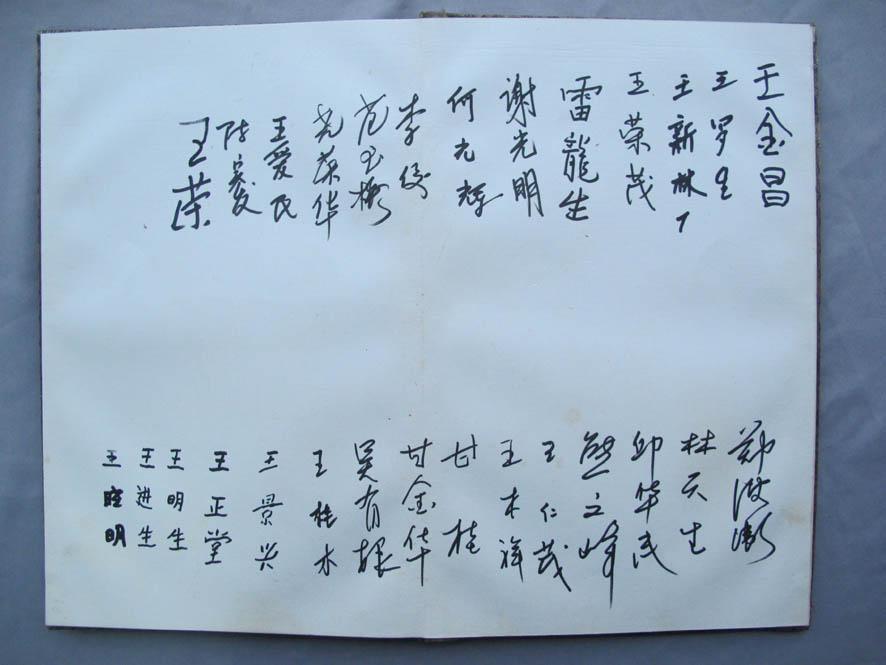 王金昌
王罗生
王新林
王荣茂
雷龍生
谢光明
何元辉
李俊
范玉彬
尧荣华
王爱民
陈
王荣
郑
林天生
邱华民
熊立峰
王仁茂
王木祥
甘桂
甘金华
吴有根
王桂水
王景兴
王正堂
王明生
王进生
王明